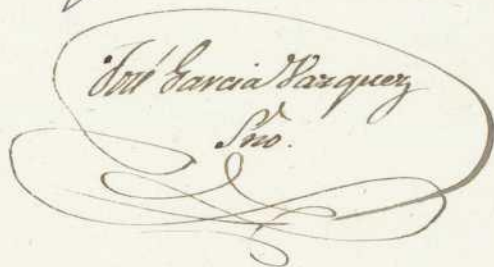 José Garcia Vazquez
Srio.